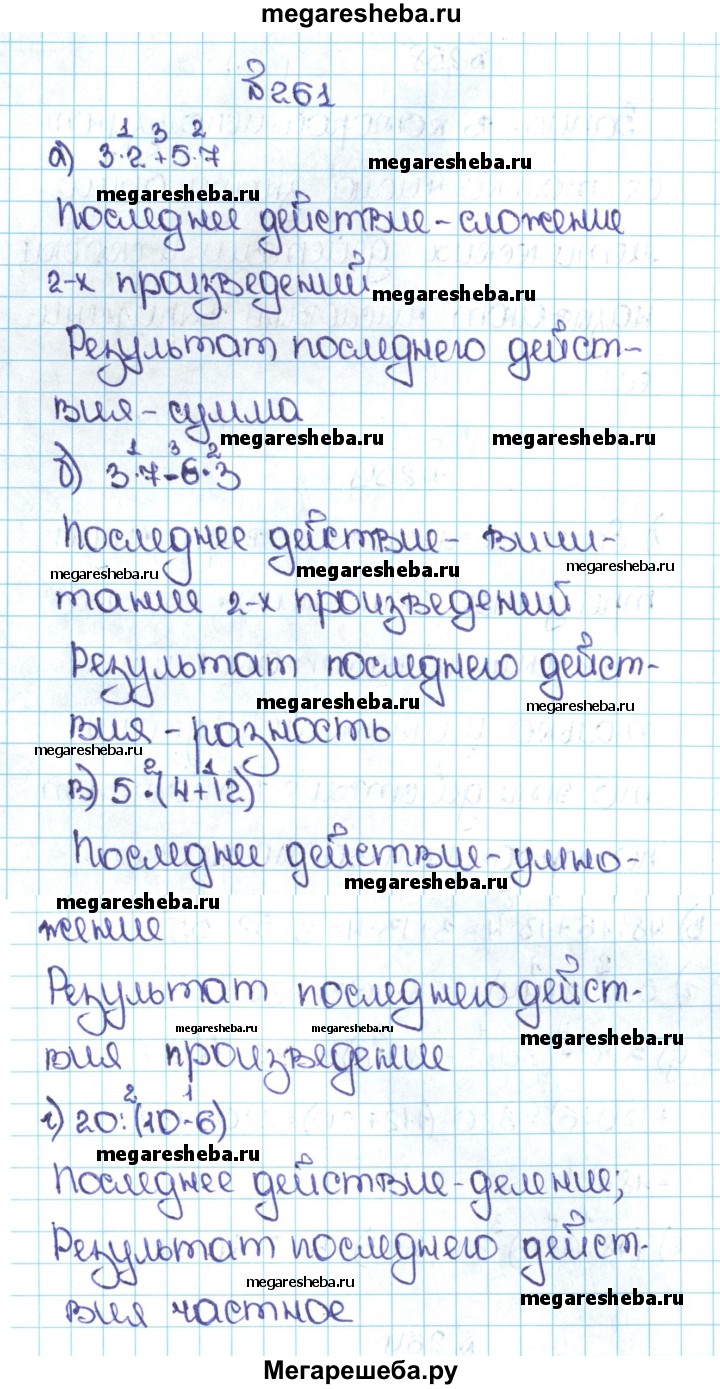 megaresheba.ru
№261
1 3 2
а) 3·2+5·7
megaresheba.ru
megaresheba.ru
Последнее действие-сложение
2-х произведений
megaresheba.ru
Результат последнего дейст-
вия-сумма
megaresheba.ru megaresheba.ru
1 3 2
б) 3·7-6·3
Последнее действие- вичи-
megaresheba.ru megaresheba.ru megaresheba.ru
тании 2-х произведений
Результат последнего дейст-
megaresheba.ru megaresheba.ru
вия-разность
megaresheba.ru
2 1
в) 5·(4+12)
Последнее действие-умно-
megaresheba.ru
megaresheba.ru
жение
Результат последнего дейст-
megaresheba.ru megaresheba.ru megaresheba.ru
вия произведение
2 1
г) 20:(10-6)
megaresheba.ru
Последнее действие-деление;
Результат последнего дейст-
megaresheba.ru megaresheba.ru
вия частное
Мегарешеба.ру